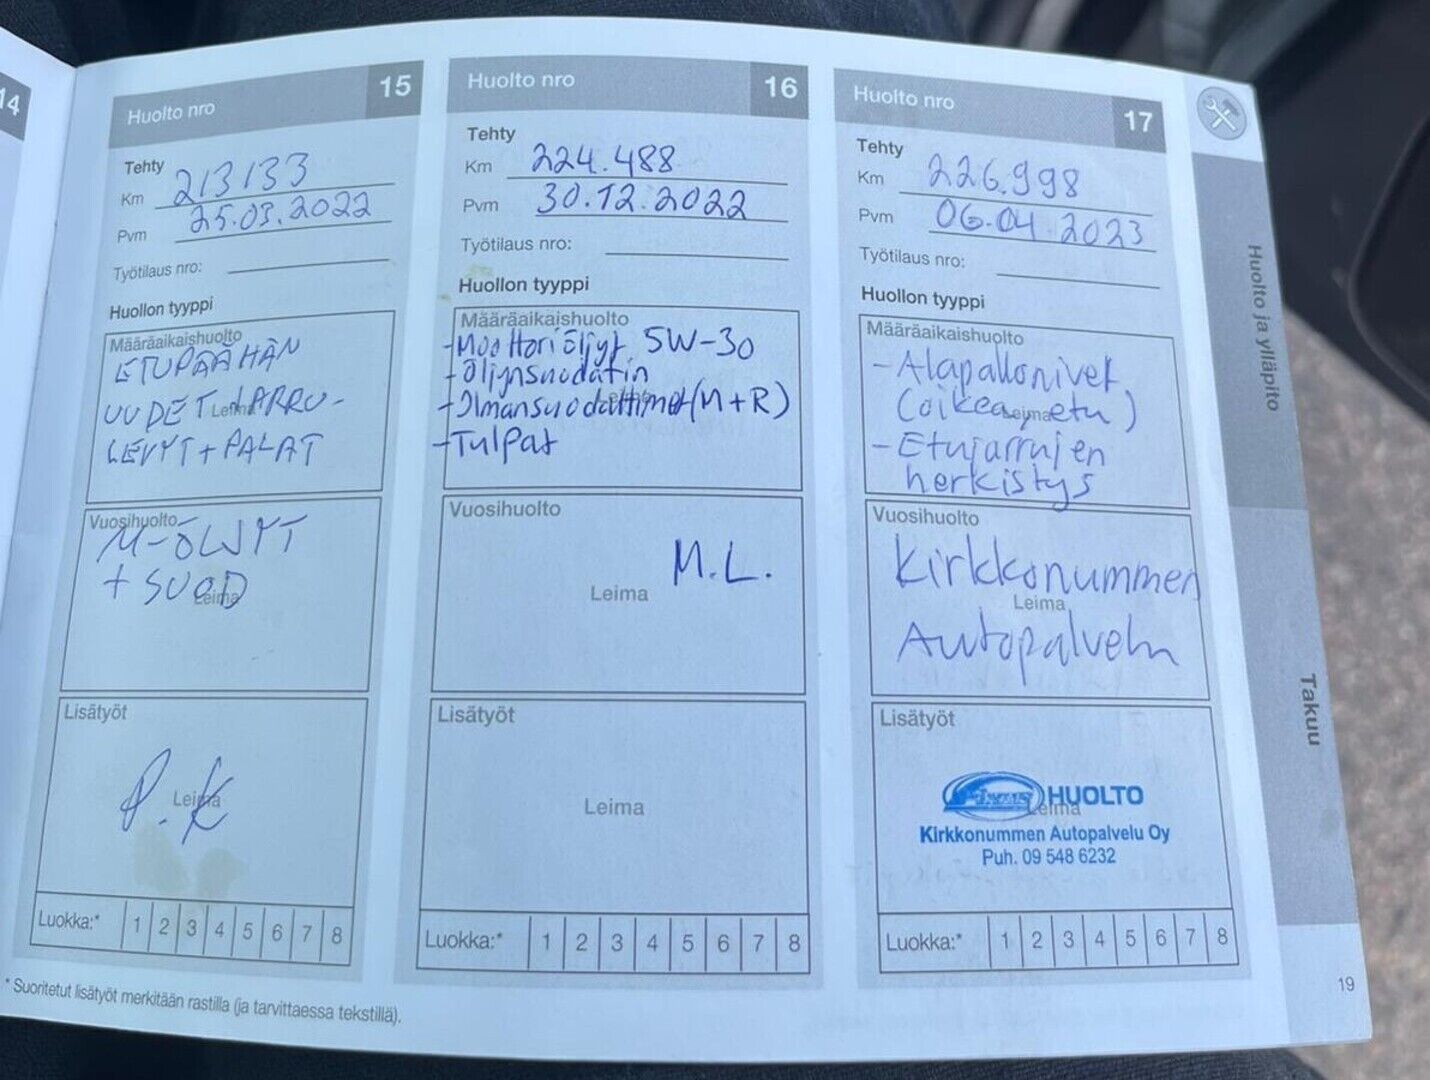 14
Huolto nro 15
Tehty
Km 213133
Pvm 25.03.2022
Työtilaus nro:
Huollon tyyppi
Määräaikaishuolto
ETUPÄÄHÄN
UUDET JARRU-
Leima
LEVYT + PALAT
Vuosihuolto
M-ÖLJYT
+ SUOD
Leima
Lisätyöt
P.K
Leima
Luokka:* 1 2 3 4 5 6 7 8
Huolto nro 16
Tehty
Km 224.488
Pvm 30.12.2022
Työtilaus nro:
Huollon tyyppi
Määräaikaishuolto
-Moottoriöljyt 5W-30
-Öljynsuodatin
Leima
-Ilmansuodattimet (M+R)
-Tulpat
Vuosihuolto
M.L.
Leima
Lisätyöt
Leima
Luokka:* 1 2 3 4 5 6 7 8
Huolto nro 17
Tehty
Km 226.998
Pvm 06.04.2023
Työtilaus nro:
Huollon tyyppi
Määräaikaishuolto
- Alapallonivel
(oikea, etu)
Leima
- Etujarrujen
herkistys
Vuosihuolto
Kirkkonummen
Leima
Autopalvelu
Lisätyöt
Fixus HUOLTO
Leima
Kirkkonummen Autopalvelu Oy
Puh. 09 548 6232
Luokka:* 1 2 3 4 5 6 7 8
* Suoritetut lisätyöt merkitään rastilla (ja tarvittaessa tekstillä).
Huolto ja ylläpito
Takuu
19